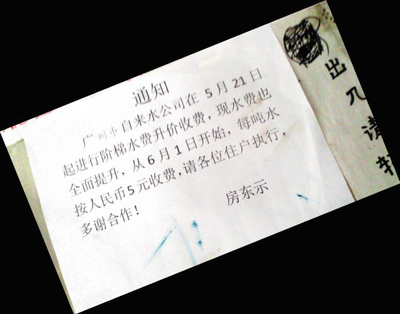 通知
广州市自来水公司在5月21日
起进行阶梯水费升价收费，现水费也
全面提升，从6月1日开始，每吨水
按人民币5元收费，请各位住户执行，
多谢合作！
房东示
出入请